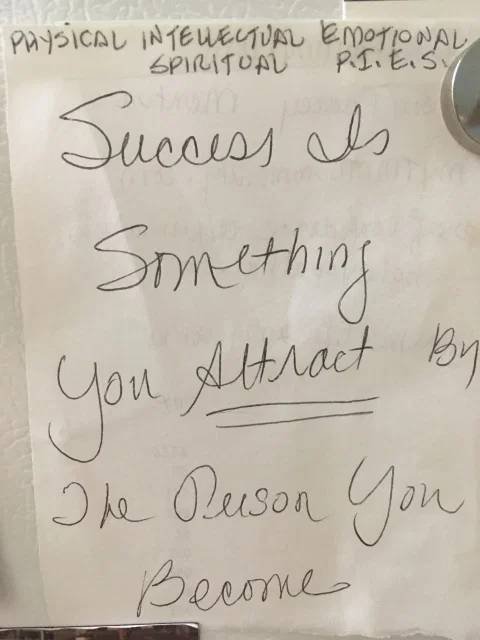 PHYSICAL INTELLECTUAL EMOTIONAL
SPIRITUAL P.I.E.S.
Success Is
Something
You Attract By
The Person You
Become